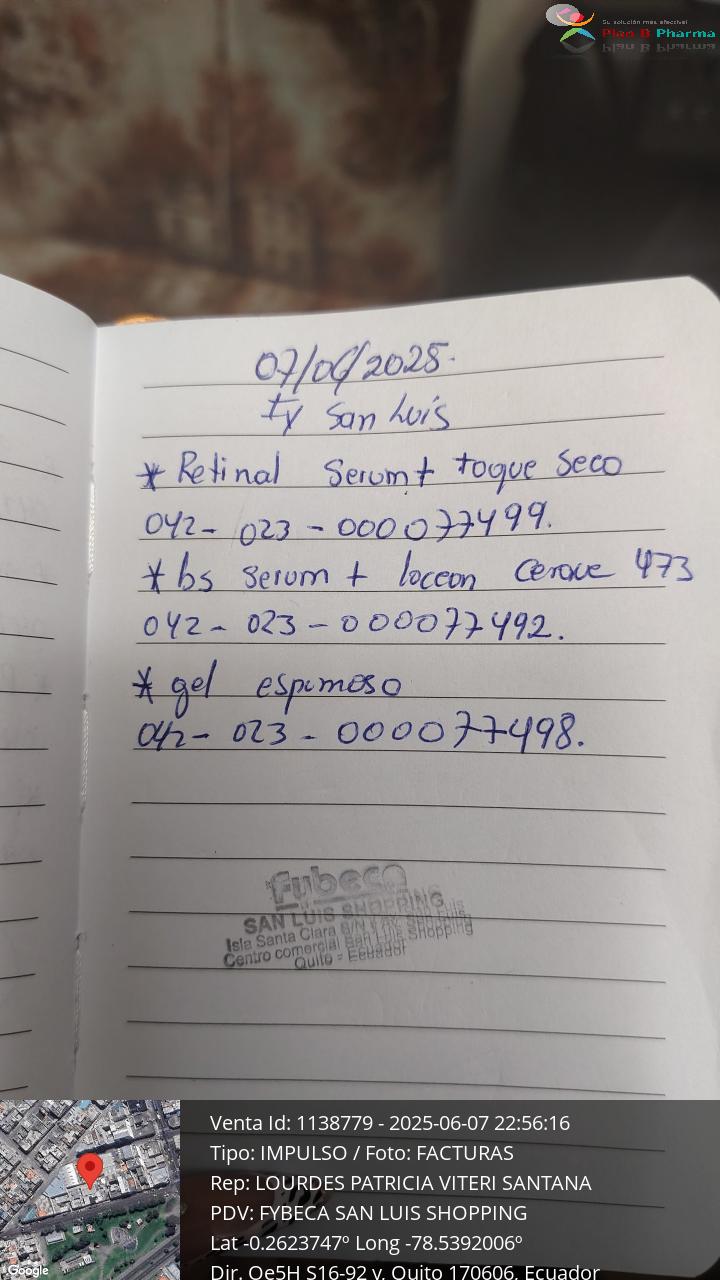 Su solución más efectiva!
Plan B Pharma
07/06/2025.
fy San Luis
* Retinal Serum + toque Seco
042 - 023 - 000077499.
* bs serum + locion Cerave 473
042 - 023 - 000077492.
* gel espumoso
042 - 023 - 000077498.
Fybeca
SAN LUIS SHOPPING
Isla Santa Clara S/N y Av. San Luis
Centro comercial San Luis Shopping
Quito - Ecuador
Venta Id: 1138779 - 2025-06-07 22:56:16
Tipo: IMPULSO / Foto: FACTURAS
Rep: LOURDES PATRICIA VITERI SANTANA
PDV: FYBECA SAN LUIS SHOPPING
Lat -0.2623747º Long -78.5392006º
Dir. Oe5H S16-92 y, Quito 170606, Ecuador
Google